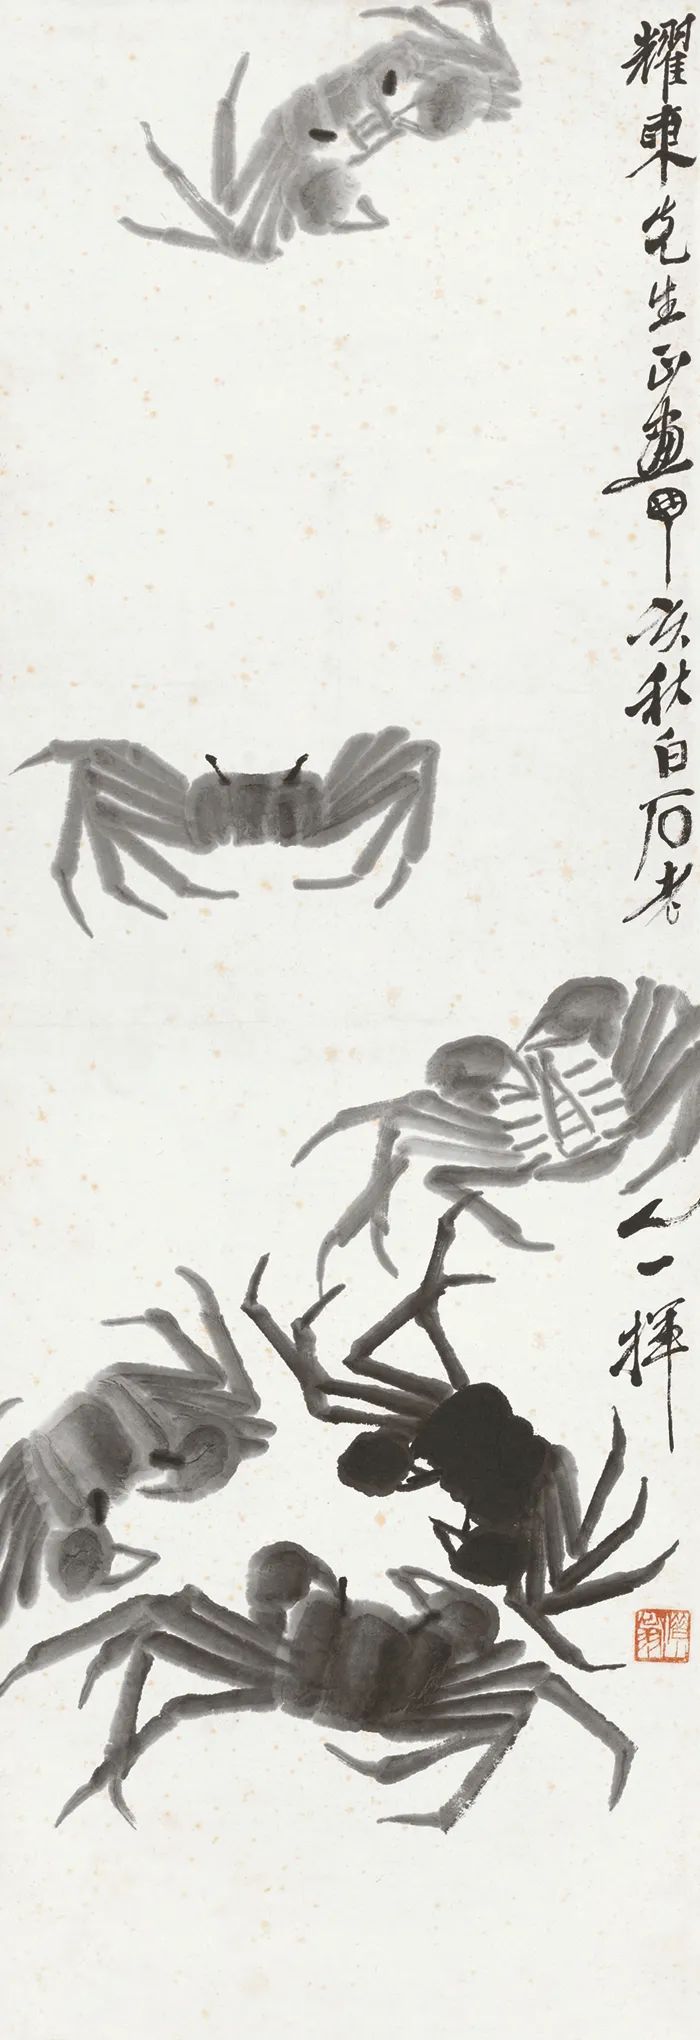 耀東先生正畫甲亥秋白石老人一揮